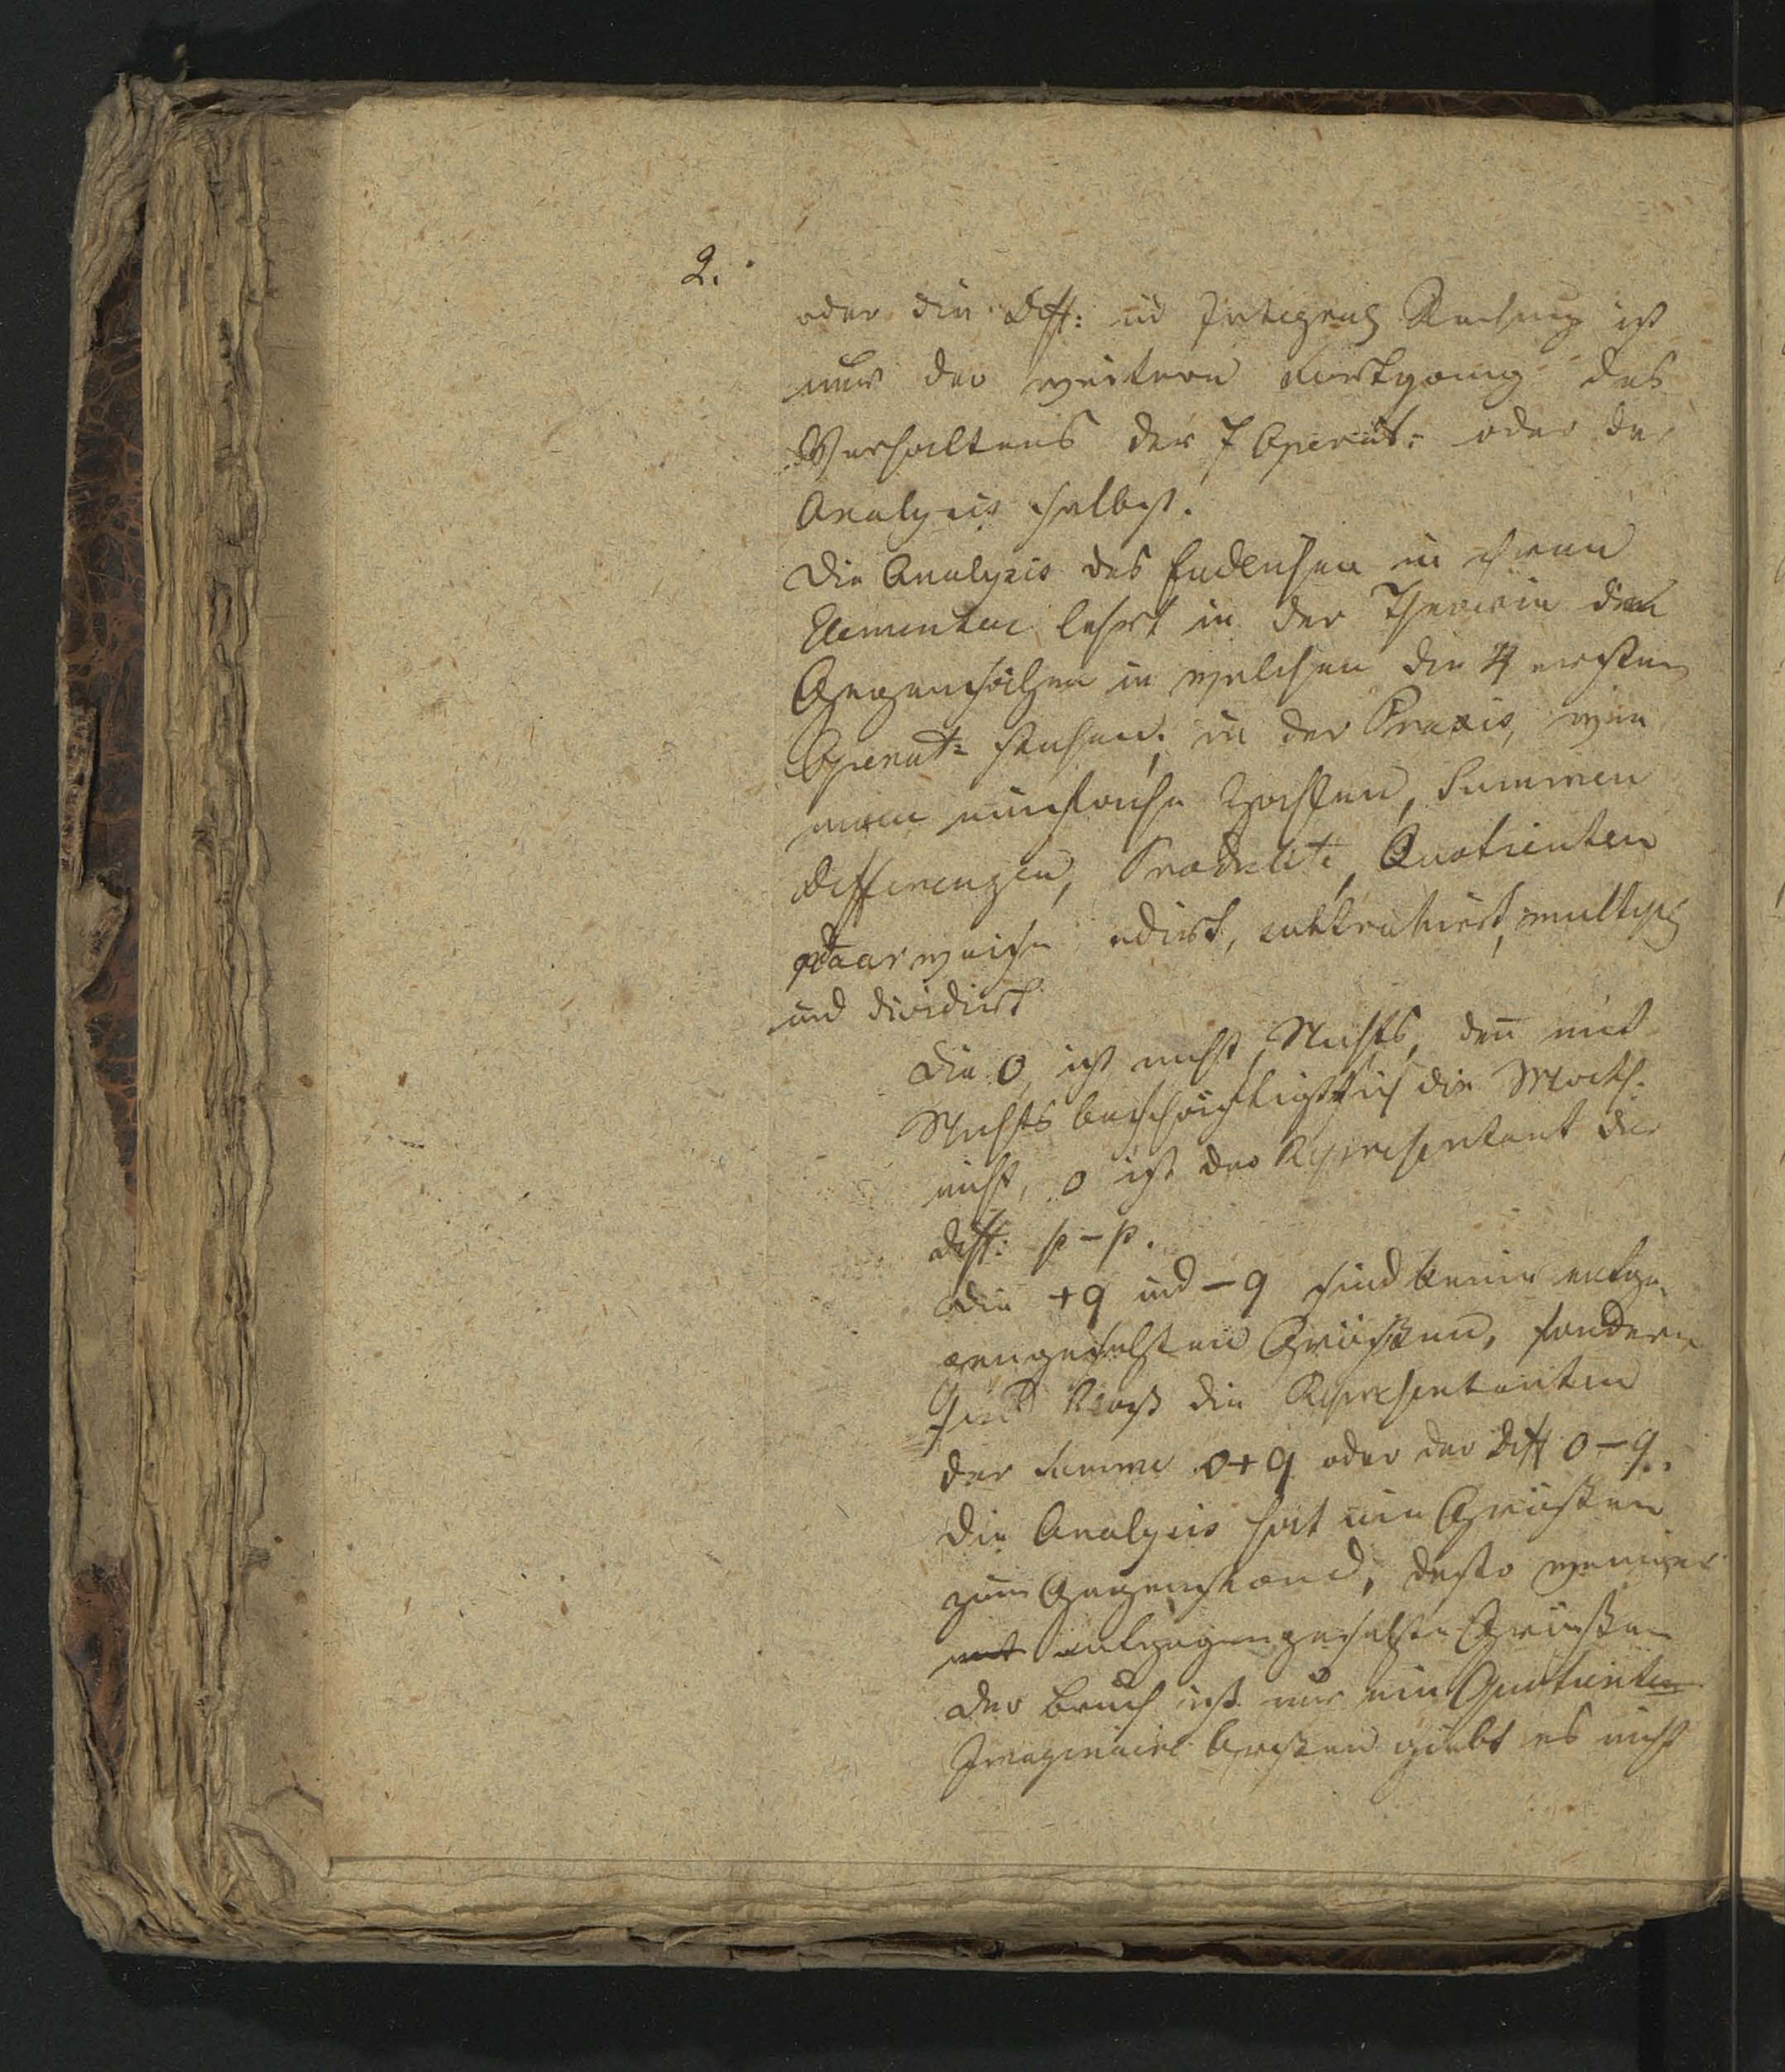 2.
oder die Diff: ud Integral Rechnung ist
nur der weitere Fortgang des
Verhaltens der 7 Operat: oder der
Analysis selbst.
Die Analysis des Endlichen in ihren
Elementen lehrt in der Theorie die
Gegensätzen in welchen die 4 ersten
Operat: stehen; in der Praxis, wie
man einfache Zahlen, Summen
Differenzen, Produkte, Quotienten
paarweise adirt, subtrahiert, multipl
und dividirt
Die 0 ist nicht Nichts, deñ mit
Nichts beschäftigt sich die Math.
nicht, 0 ist der Representant der
Diff: p-p.
Die +q und -q sind keine entge-
gengesetzten Größen, sondern
sind bloß die Representanten
der Summe 0+q oder der Diff 0-q.
Die Analysis hat nie Größen
zum Gegenstand, desto weniger
entgegengesetzte Größen
Der Bruch ist nur ein Quotienten
Imaginaire Grössen giebt es nicht